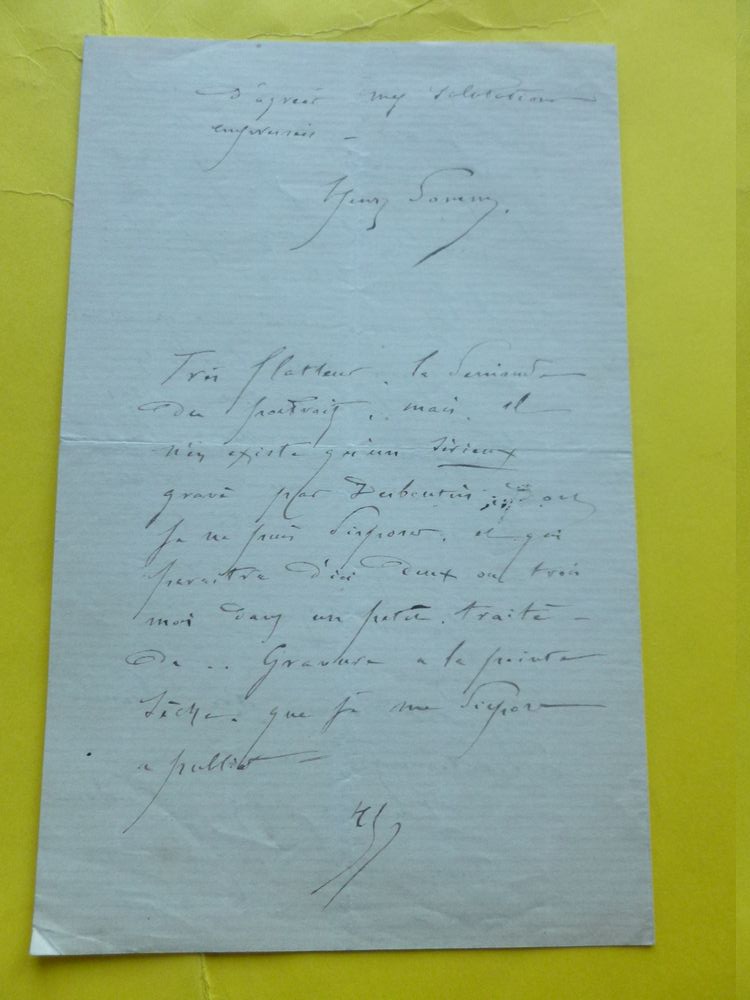 D'agréer mes salutations
empressées –
Henry Somm.
Très flatteur, la demande
du portrait, mais, il
n'en existe qu'un sérieux
gravé par Desboutin, dont
je ne puis disposer, et qui
paraitra d'ici deux ou trois
moi dans un petit traité –
De .. Gravure a la pointe
Sèche. que je me dispose
a publier –
HS